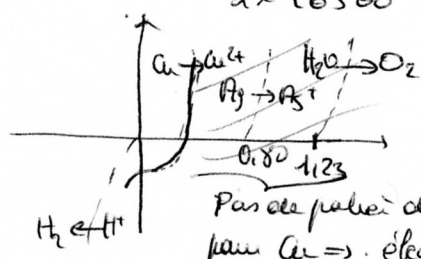 Cu → Cu²⁺ H₂O → O₂
Ag → Ag⁺
0,80 1,23
H₂ ← H⁺ Pas de palier d
pour Cu ⇒ éle